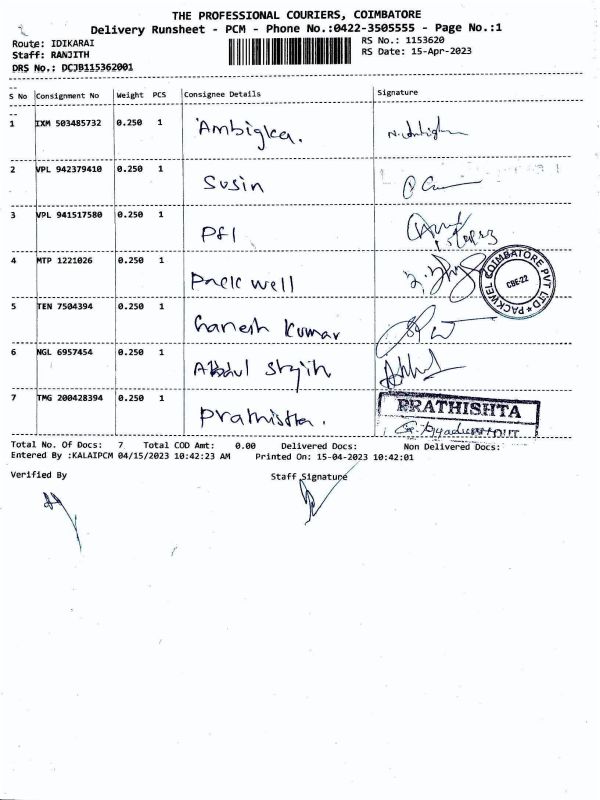 THE PROFESSIONAL COURIERS, COIMBATORE
Delivery Runsheet - PCM - Phone No.:0422-3505555 - Page No.:1
Route: IDIKARAI RS No.: 1153620
Staff: RANJITH RS Date: 15-Apr-2023
DRS No.: DCJB115362001
S No Consignment No Weight PCS Consignee Details Signature
1 IXM 503485732 0.250 1 Ambigka.
2 VPL 942379410 0.250 1 Susin
3 VPL 941517580 0.250 1 PSI
4 MTP 1221026 0.250 1 Pack well
PACKWEL COIMBATORE PVT LTD
CBE-22
5 TEN 7504394 0.250 1 Ganesh Kumar
6 NGL 6957454 0.250 1 Abdul
7 TMG 200428394 0.250 1 Prathistha.
PRATHISHTA
Total No. Of Docs: 7 Total COD Amt: 0.00 Delivered Docs: Non Delivered Docs:
Entered By :KALAIPCM 04/15/2023 10:42:23 AM Printed On: 15-04-2023 10:42:01
Verified By Staff Signature